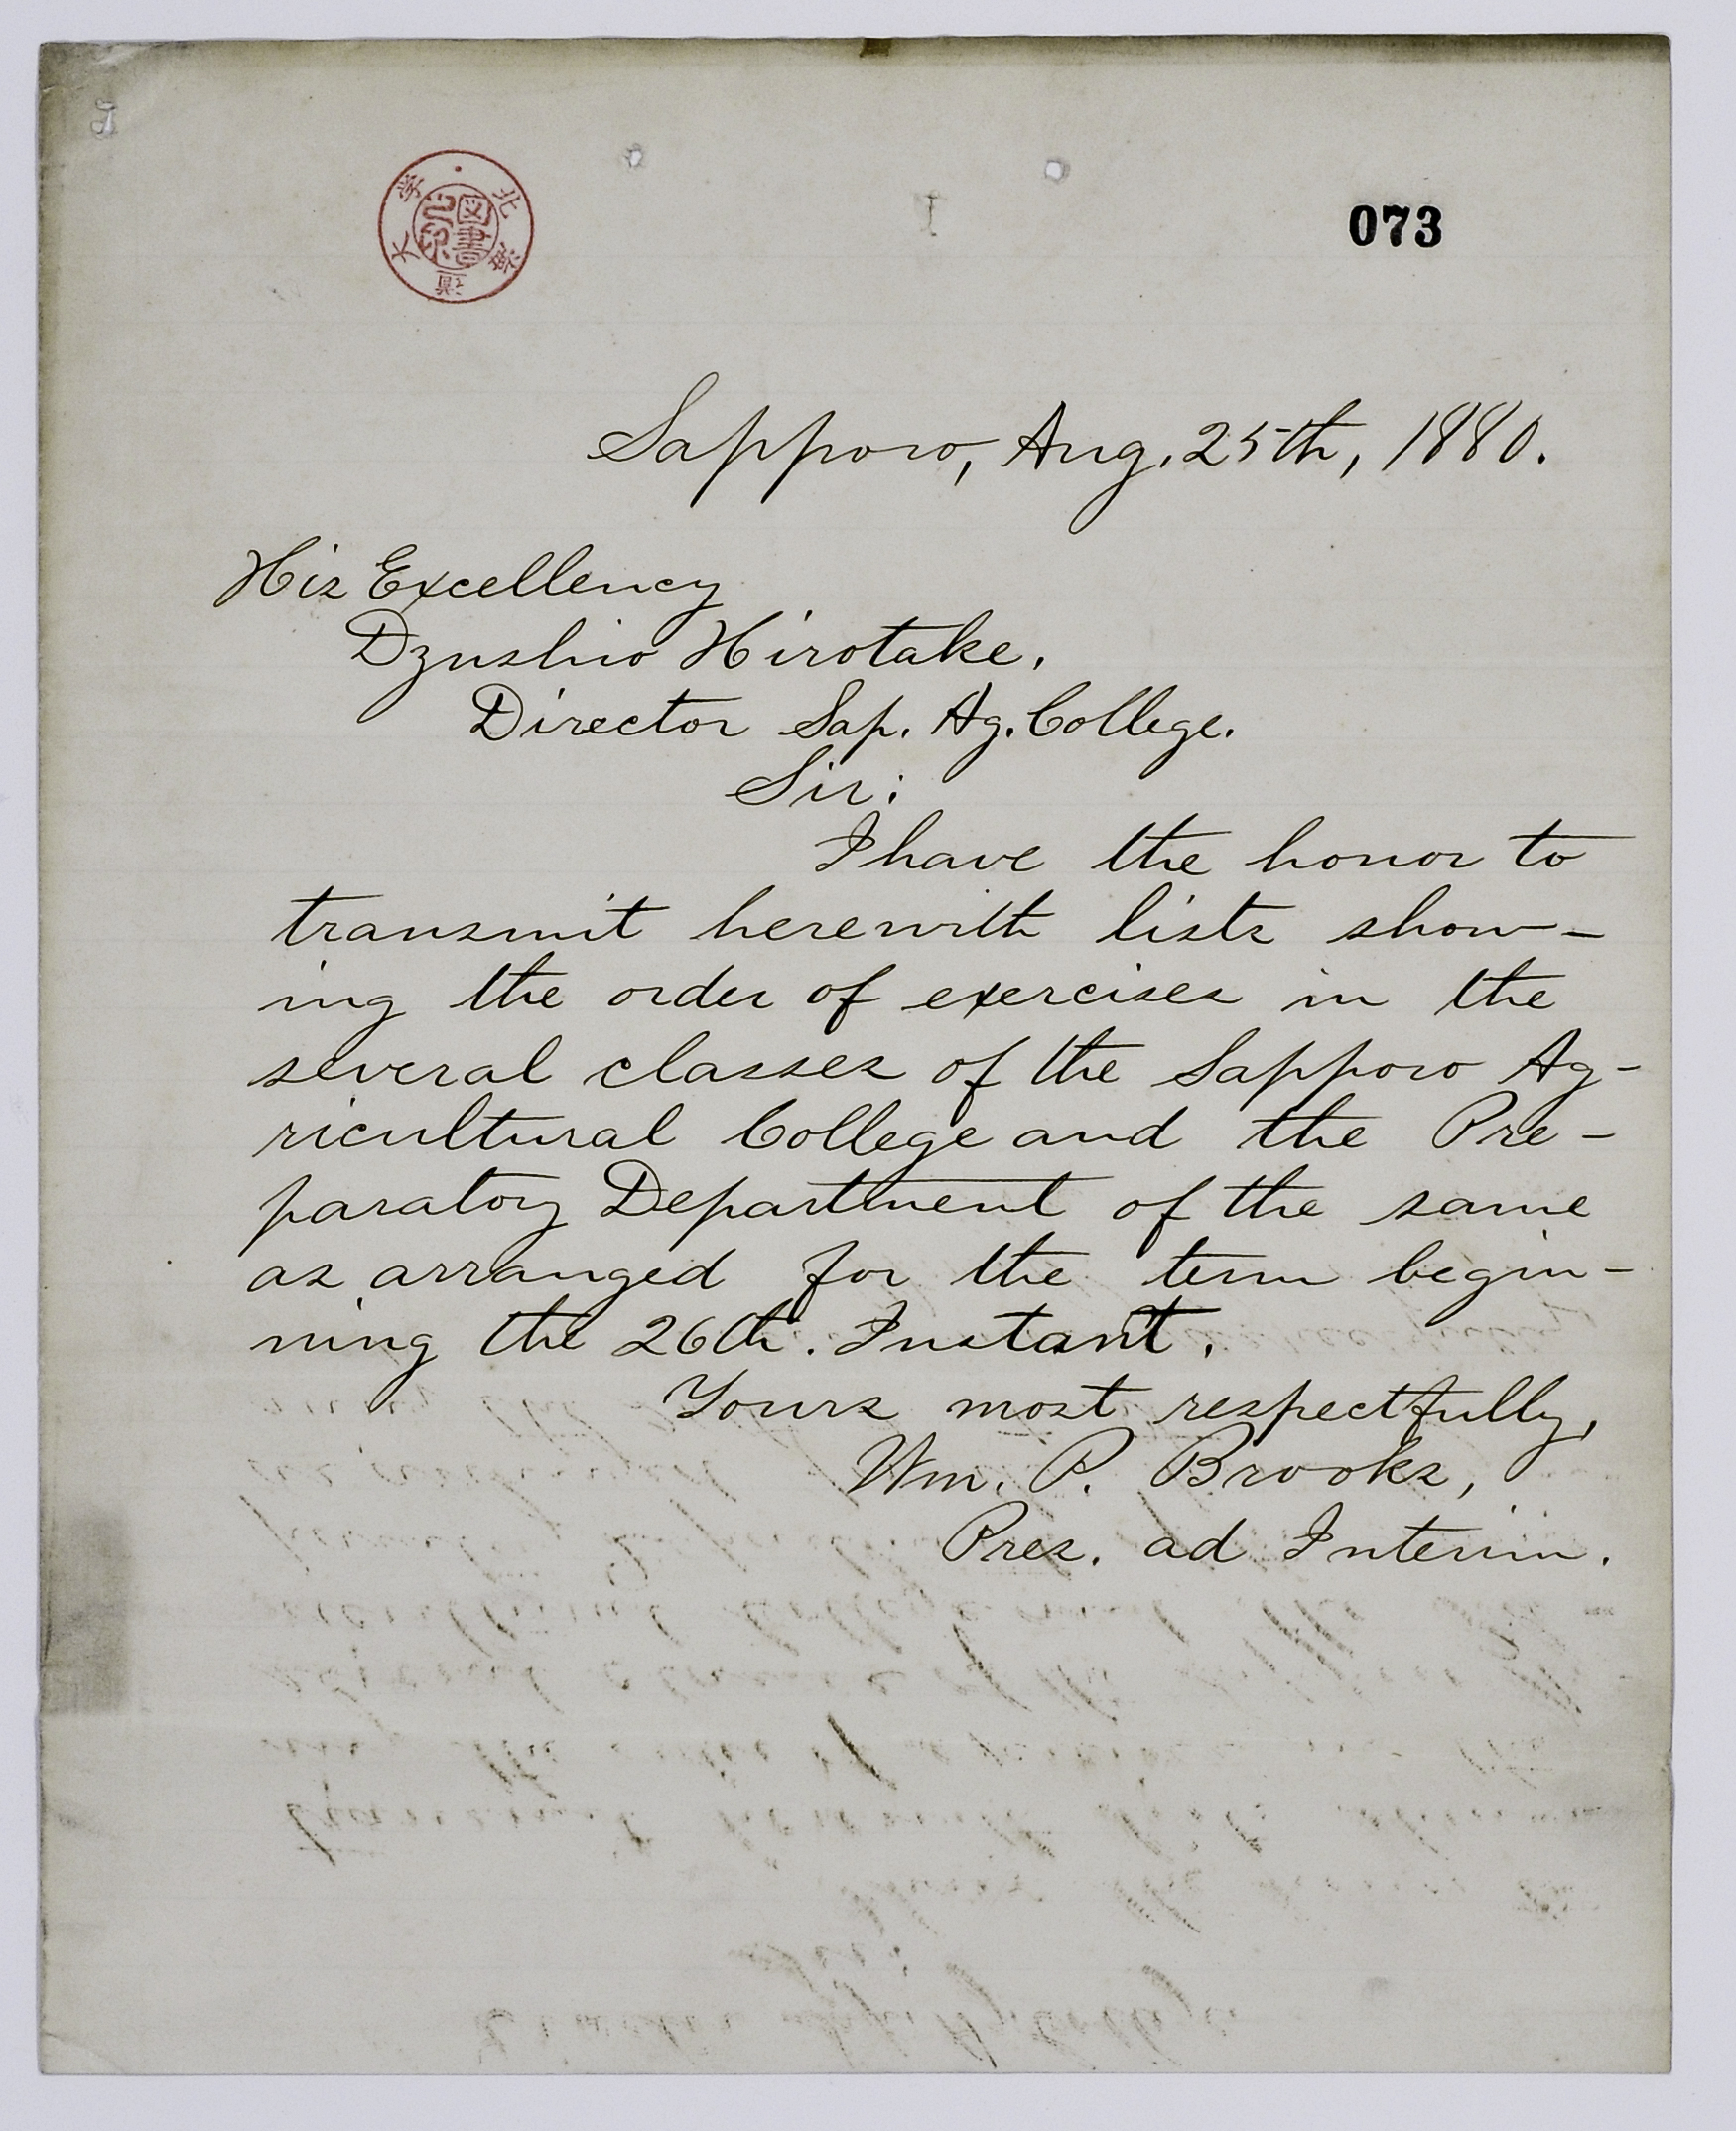 北海道大学
図書之印
073
Sapporo, Aug. 25th, 1880.
His Excellency
Dzushio Hirotake.
Director Sap. Ag. College.
Sir:
I have the honor to
transmit herewith lists show-
ing the order of exercises in the
several classes of the Sapporo Ag-
ricultural College and the Pre-
paratory Department of the same
as arranged for the term begin-
ning the 26th. Instant.
Yours most respectfully,
Wm. P. Brooks,
Pres. ad Interim.